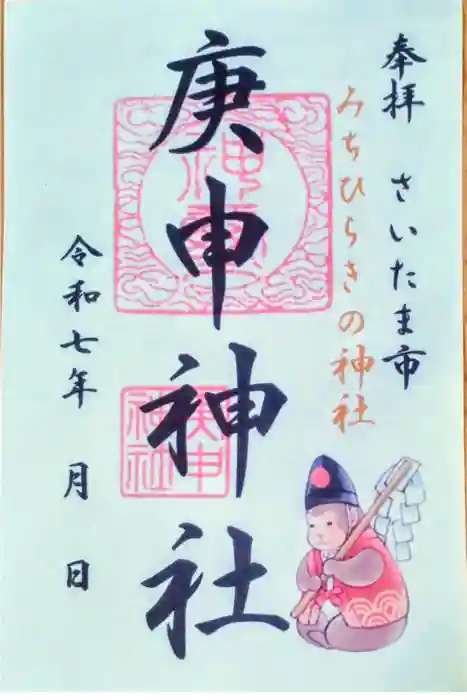 奉拝 さいたま市
みちひらきの神社
庚申神社
庚申
神社
令和七年 月 日